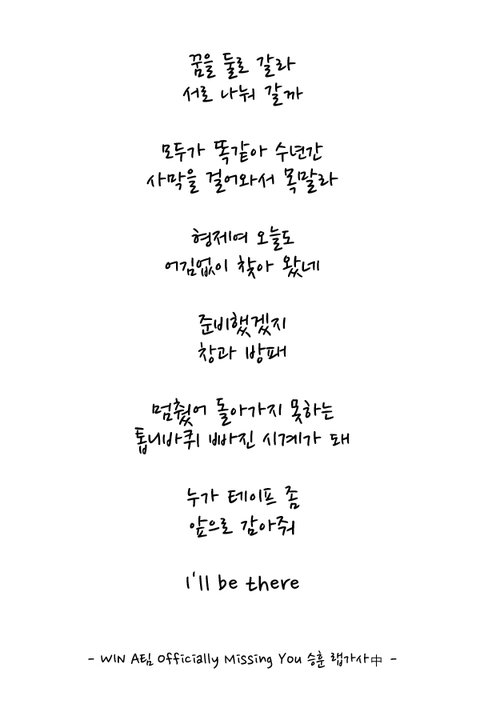 꿈을 둘로 갈라
서로 나눠 갈까
모두가 똑같아 수년간
사막을 걸어와서 목말라
형제여 오늘도
어김없이 찾아 왔네
준비했겠지
창과 방패
멈췄어 돌아가지 못하는
톱니바퀴 빠진 시계가 돼
누가 테이프 좀
앞으로 감아줘
I'll be there
- WIN A팀 Officially Missing You 승훈 랩가사中 -